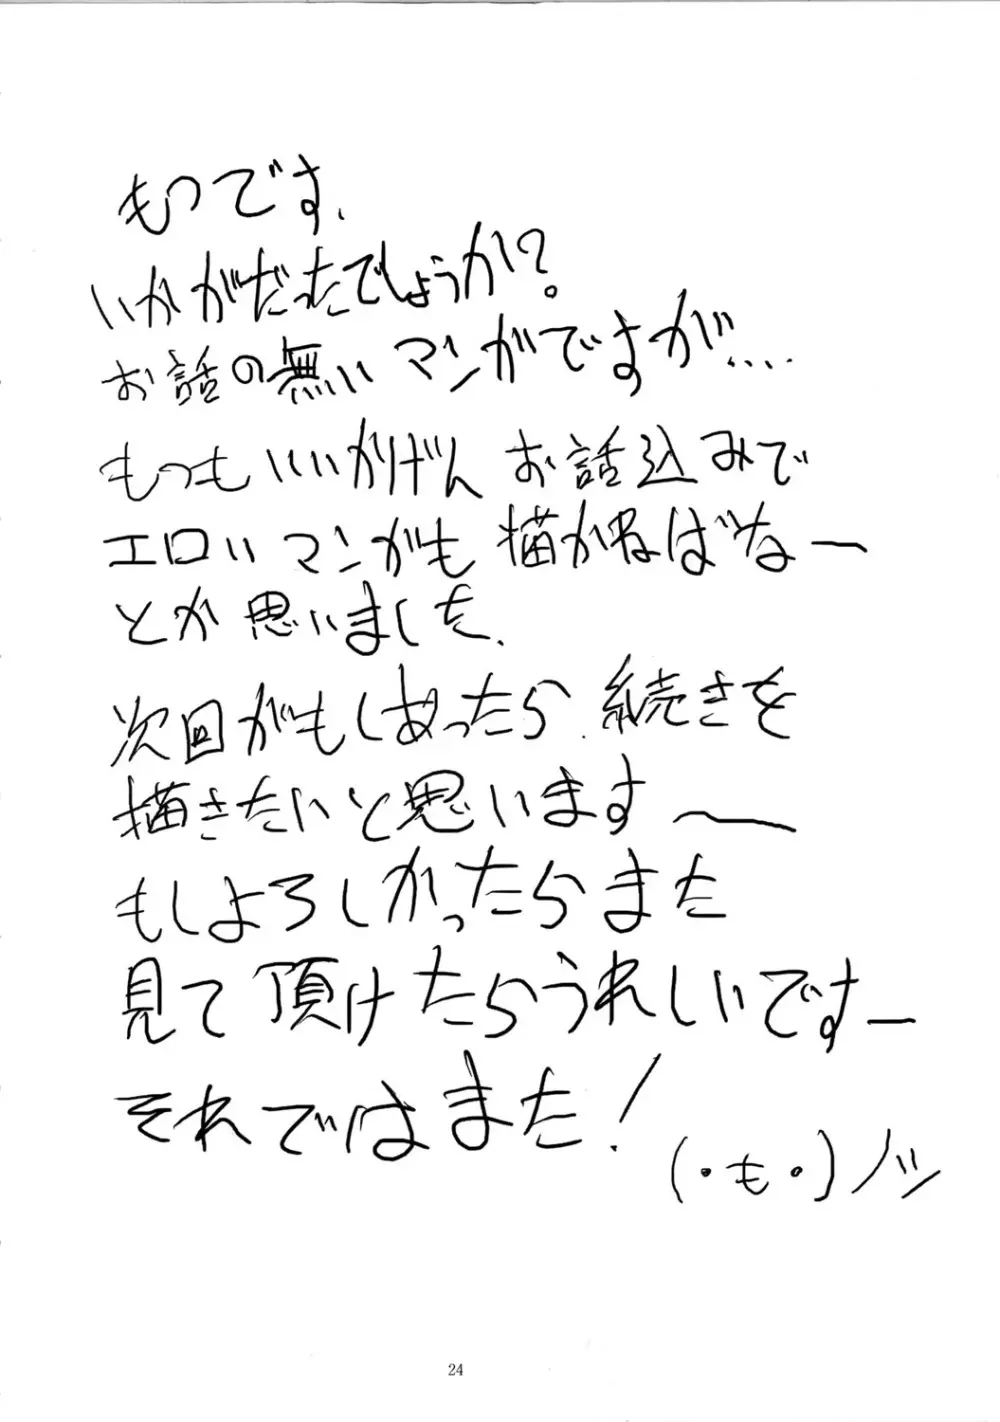 もつです.
いかがだったでしょうか?
お話の無いマンガですが....
もつもいいかげんお話込みで
エロいマンガも描かねばなー
とか思いました.
次回がもしあったら.続きを
描きたいと思います〜
もしよろしかったらまた
見て頂けたらうれしいですー
それではまた!
(・も・)ノシ
24